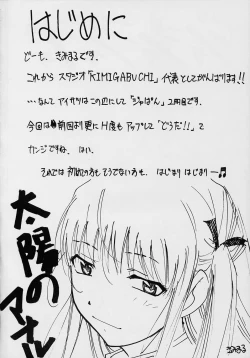 はじめに
どーも、きみまるです。
これから スタジオ「KIMIGABUCHI」代表としてがんばります!!
…なんてアイサツはこの辺にして「じゃぱん」2冊目です。
今回は前回より更にH度もアップして「どうだ!!」て
カンジですね、はい。
それでは 初めての方も そうでない方も、はじまり はじまり ー♫
太陽の
アナル
きみまる